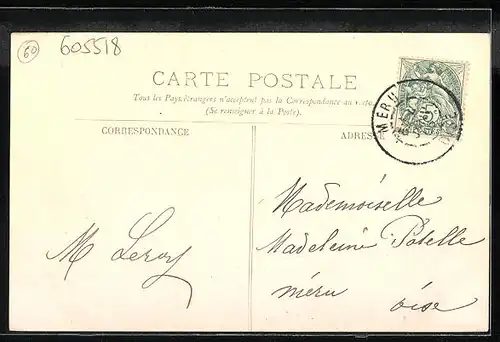 60
605518
CARTE POSTALE
Tous les Pays étrangers n'acceptent pas la Correspondance au recto.
(Se renseigner à la Poste).
CORRESPONDANCE
ADRESSE
MERU
M Leroy
Mademoiselle
Madeleine Patelle
méru oise